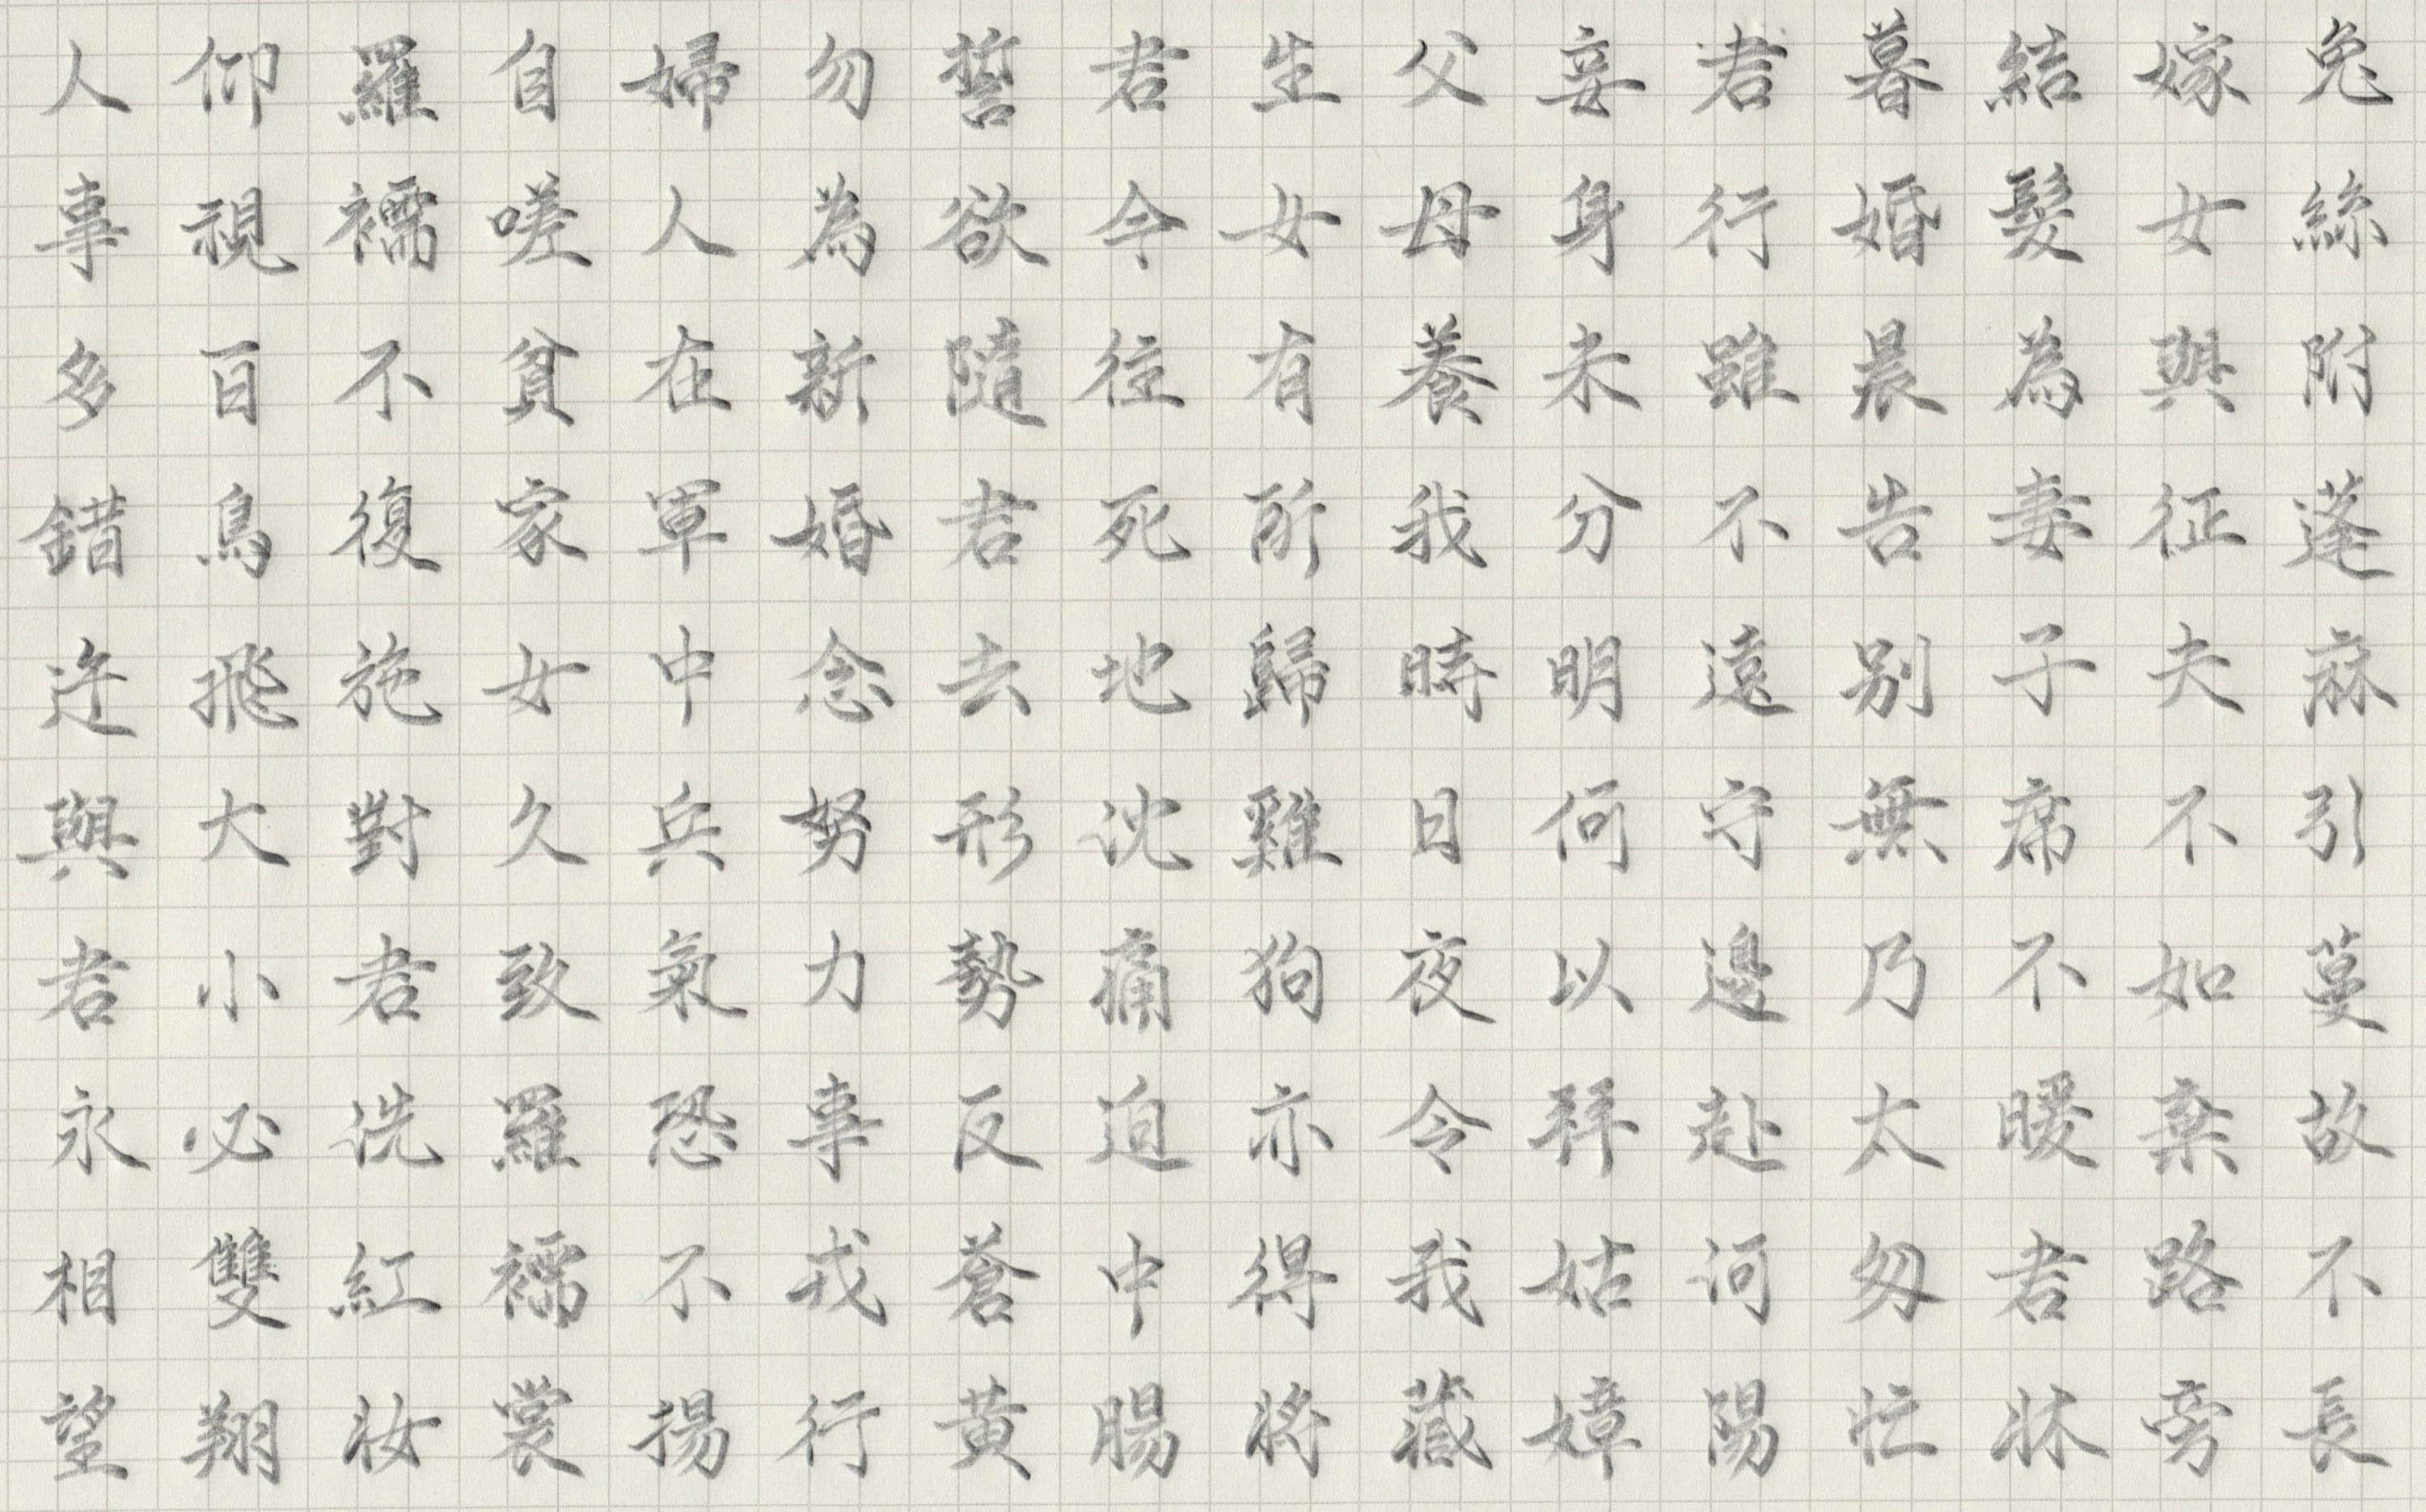 兔絲附蓬麻引蔓故不長
嫁女與征夫不如棄路旁
結髮為妻子席不暖君牀
暮婚晨告別無乃太匆忙
君行雖不遠守邊赴河陽
妾身未分明何以拜姑嫜
父母養我時日夜令我藏
生女有所歸雞狗亦得將
君今往死地沈痛迫中腸
誓欲隨君去形勢反蒼黃
勿為新婚念努力事戎行
婦人在軍中兵氣恐不揚
自嗟貧家女久致羅襦裳
羅襦不復施對君洗紅妝
仰視百鳥飛大小必雙翔
人事多錯迕與君永相望